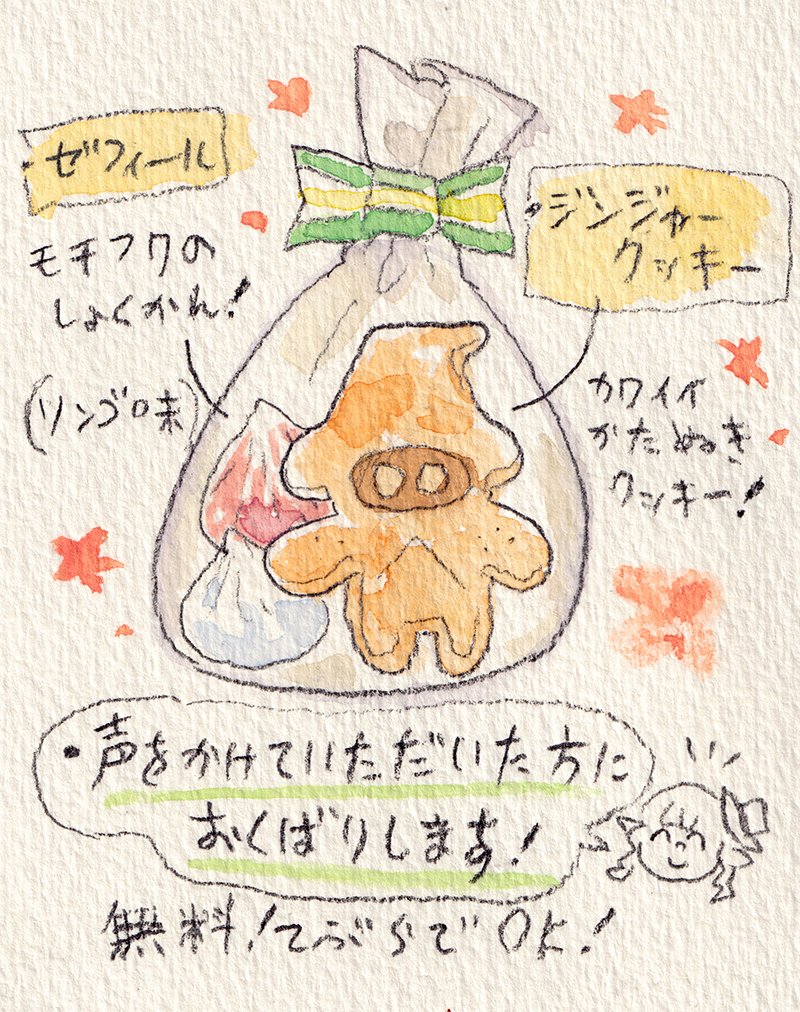 ゼフィール
モチフワの
しょくかん!
(リンゴ味)
ジンジャー
クッキー
カワイイ
かたぬき
クッキー!
・声をかけていただいた方に
おくばりします!
無料!てぶらでOK!